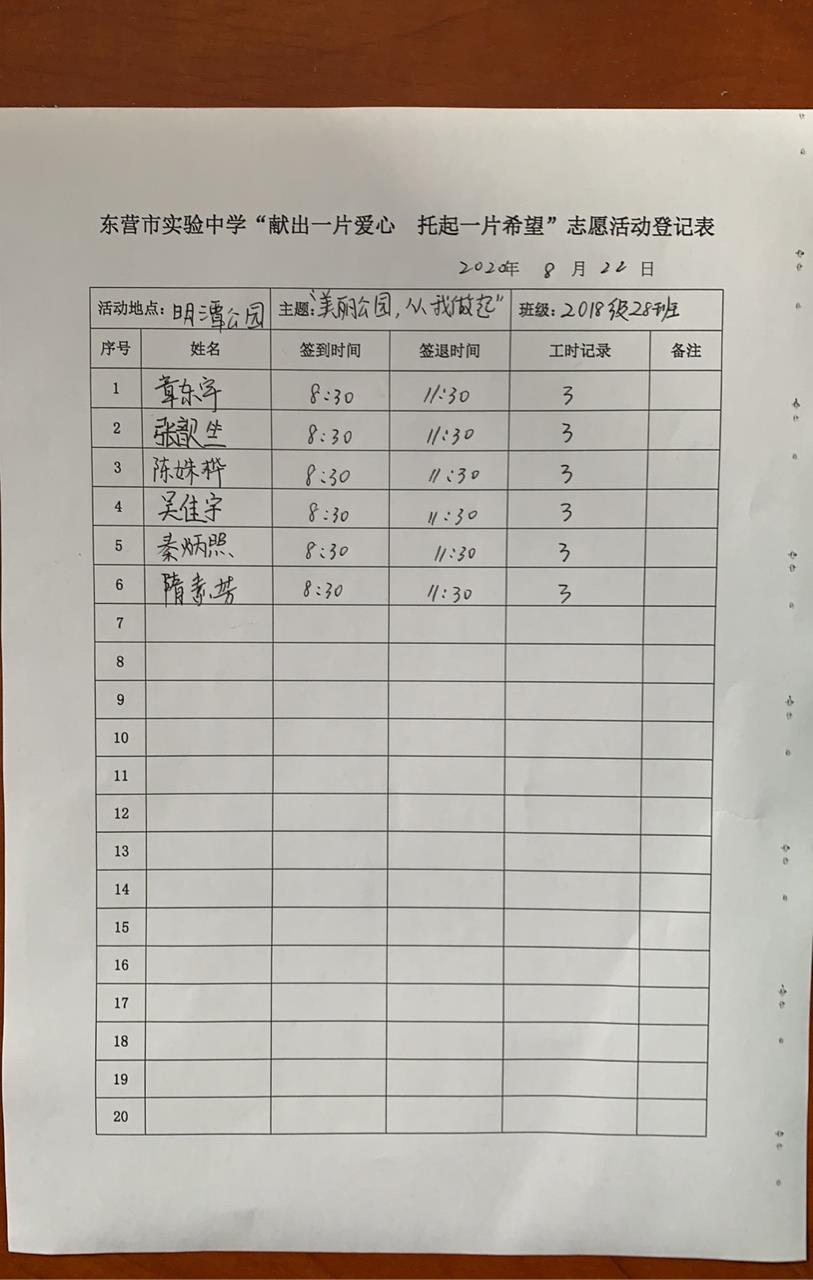 东营市实验中学“献出一片爱心 托起一片希望”志愿活动登记表
2020年 8 月 22 日
活动地点：明潭公园 主题：“美丽公园，从我做起” 班级：2018级28班
序号 姓名 签到时间 签退时间 工时记录 备注
1 章东宇 8:30 11:30 3
2 张歆坐 8:30 11:30 3
3 陈姝桦 8:30 11:30 3
4 吴佳宇 8:30 11:30 3
5 秦炳照 8:30 11:30 3
6 隋素芳 8:30 11:30 3
7
8
9
10
11
12
13
14
15
16
17
18
19
20